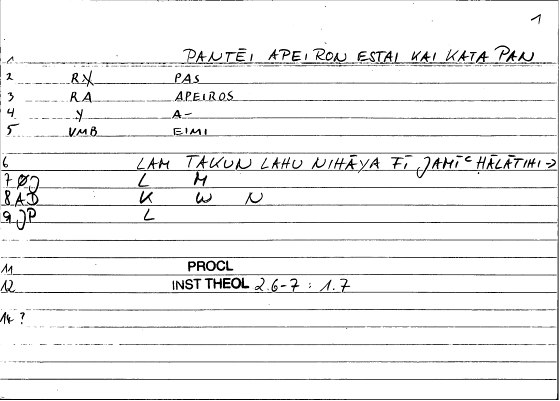 1
1 PANTĒI APEIRON ESTAI KAI KATA PAN
2 RX PAS
3 RA APEIROS
4 Y A-
5 VMB EIMI
6 LAM TAKUN LAHU NIHĀYA FĪ JAMĪᶜ HĀLĀTIHI →
7 ØJ L M
8 AD K W N
9 JP L
11 PROCL
12 INST THEOL 2.6-7 : 1.7
14 ?